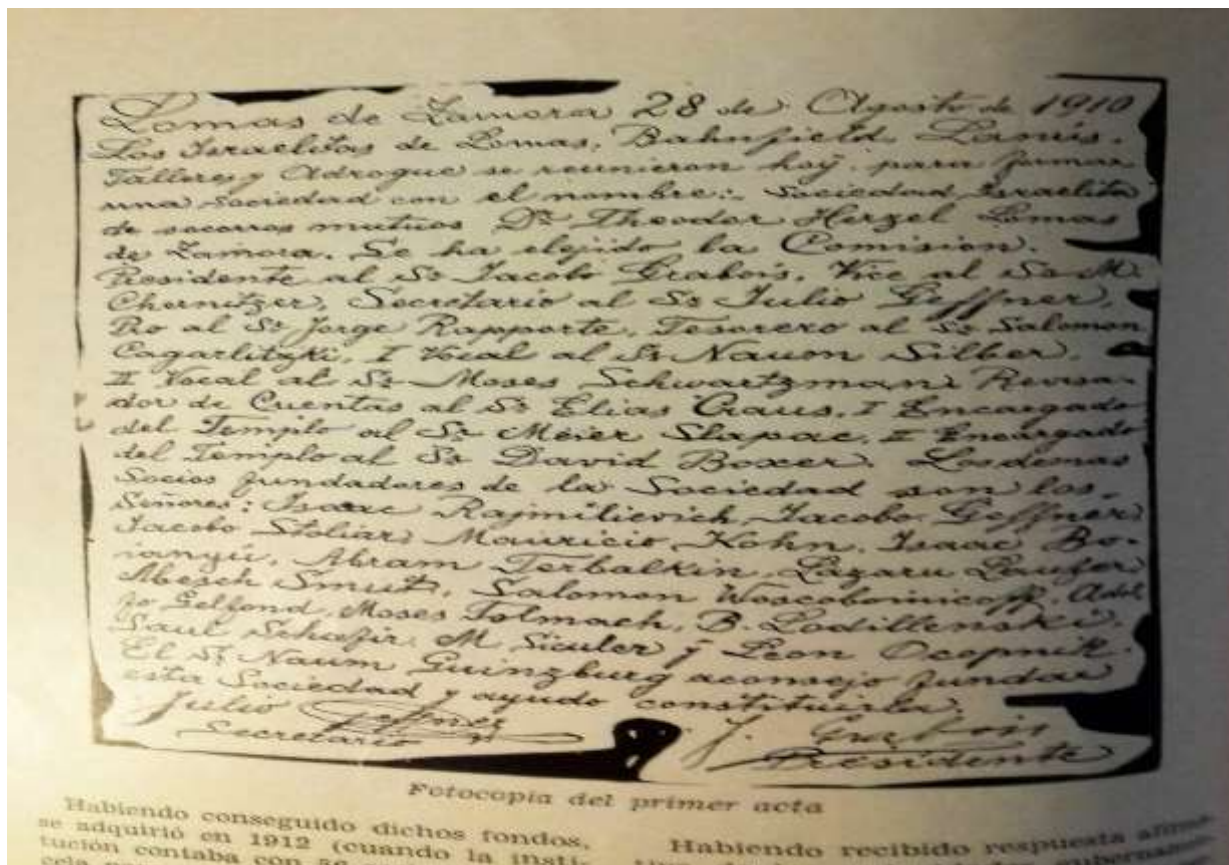 Lomas de Zamora 28 de Agosto de 1910
Los Israelitas de Lomas, Bahnfield, Lanús,
Talleres y Adrogue se reunieron hoy para formar
una sociedad con el nombre: Sociedad Israelita
de socorros mutuos Dr Theodor Herzel Lomas
de Zamora. Se ha elejido la Comision.
Presidente al Sr Jacobo Grabois, Vice al Sr M.
Chernitzer, Secretario al Sr Julio Geffner,
Pro al Sr Jorge Rapporte, Tesorero al Sr Salomon
Cagarlitzki, I Vocal al Sr Naum Silber,
II Vocal al Sr Moses Schwartzman Revisa-
dor de Cuentas al Sr Elias Craus, I Encargado
del Templo al Sr Meier Slapac, II Encargado
del Templo al Sr David Boxer. Los demas
Socios fundadores de la Sociedad son los
Señores: Isaac Rajmilievich, Jacobo Geffner,
Jacobo Stoliar, Mauricio Kohn, Isaac Bo-
Abram Terbalkin, Lazaru
Abesch Smut, Salomon Woscoboinicoff, Adol
fo Gelfond, Moses Tolmach, B.
Saul Schafir, M Siculer y Leon Ocopnik.
El Sr Naum Guinzburg aconsejo fundar
esta Sociedad y ayudo constituirla
Julio Geffner J. Grabois
Secretario Presidente
Fotocopia del primer acta
Habiendo conseguido dichos fondos,
se adquirió en 1912 (cuando la insti-
tución contaba con
Habiendo recibido respuesta afirma-